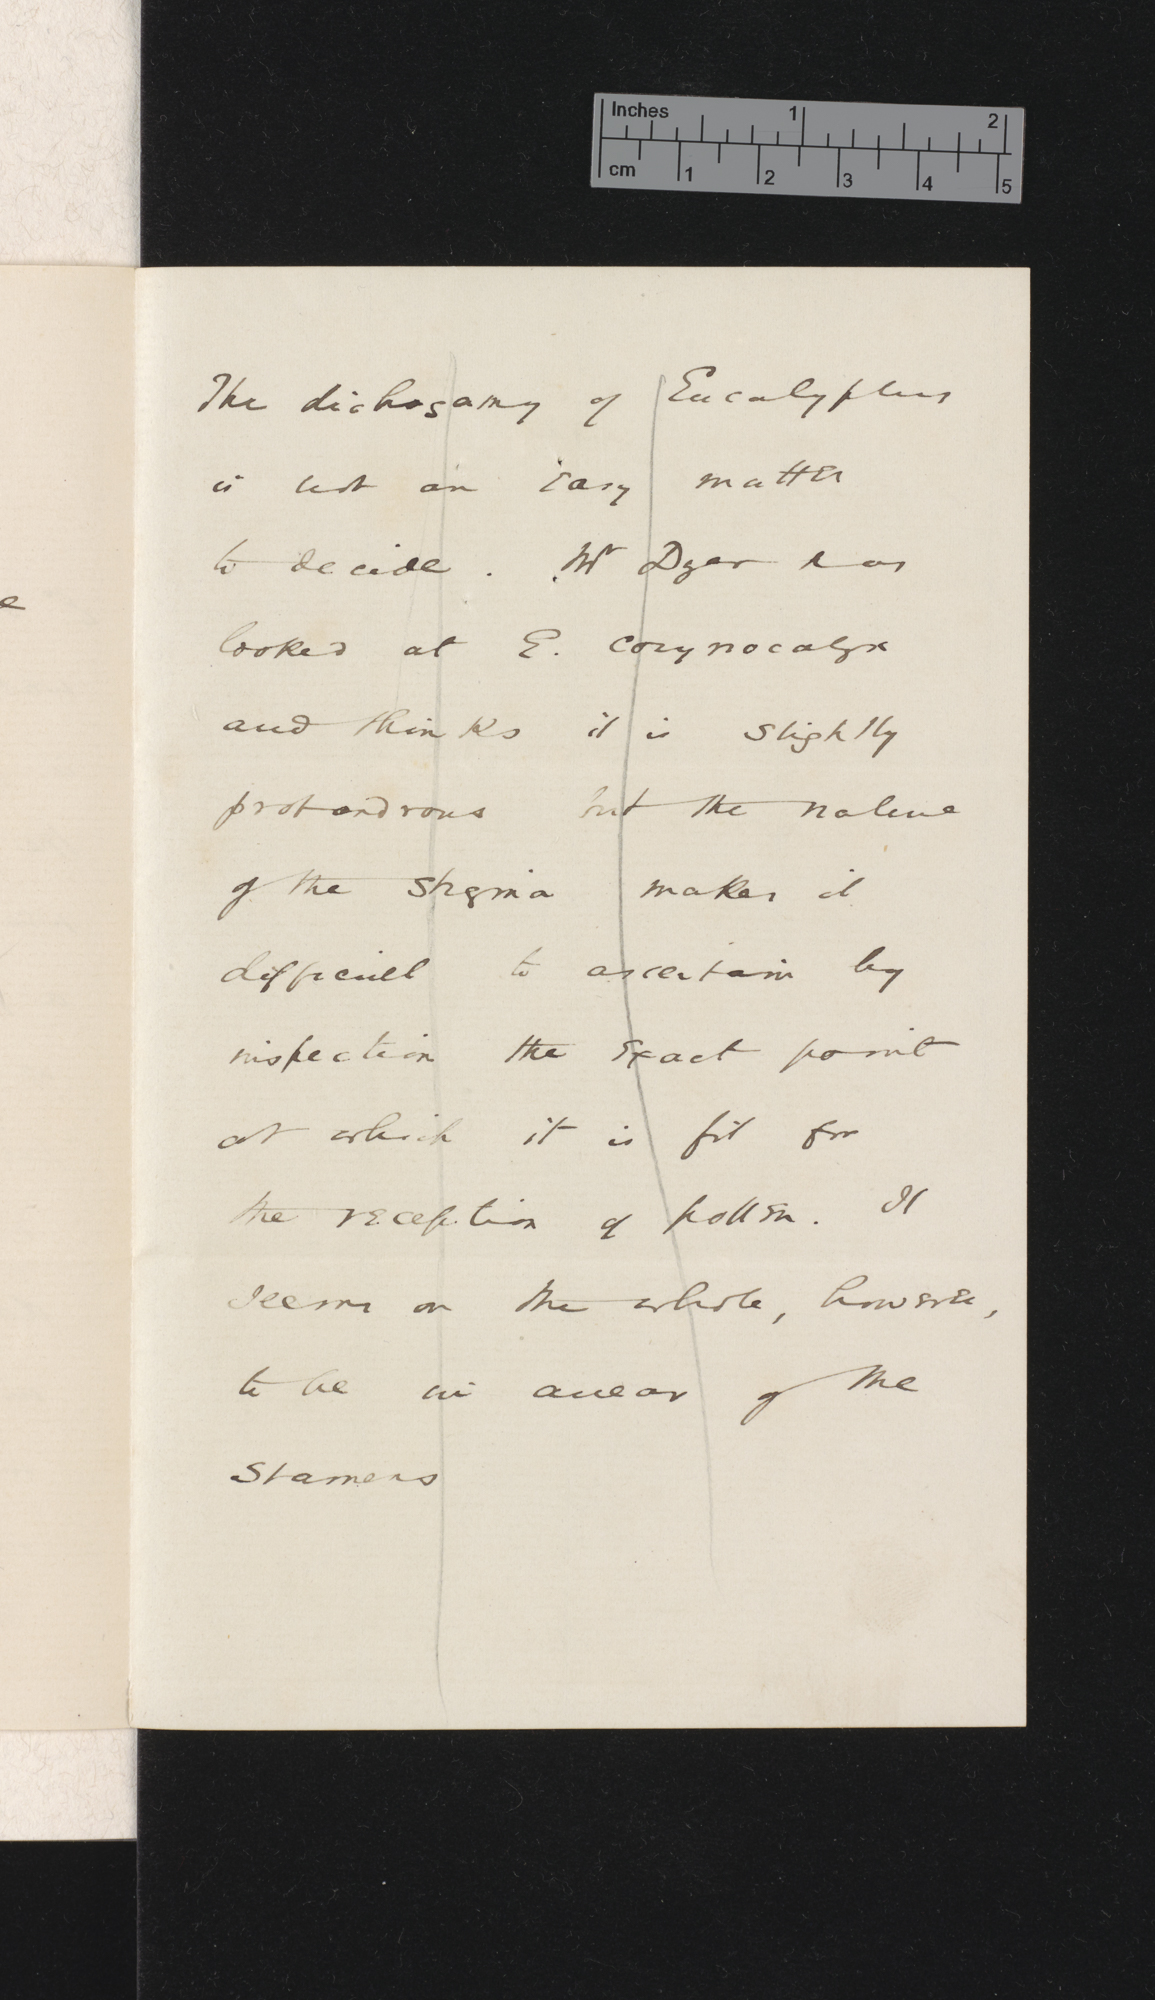 Inches 1 2
cm 1 2 3 4 5
The dichogamy of Eucalyptus
is not an easy matter
to decide. Mr Dyer has
looked at E. corynocalyx
and thinks it is slightly
protandrous but the nature
of the stigma makes it
difficult to ascertain by
inspection the exact point
at which it is fit for
the reception of pollen. It
seems on the whole, however,
to be in arrear of the
Stamens
e